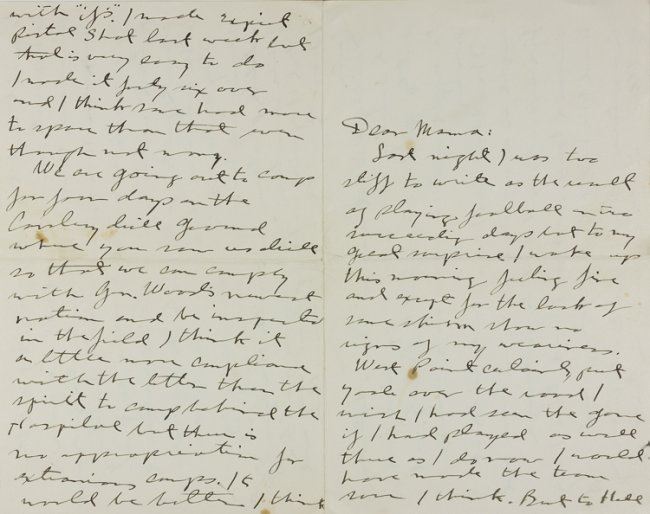 Dear Mama:
Last night I was too
stiff to write as the result
of playing football on two
succeeding days but to my
great surprise I woke up
this morning feeling fine
and except for the lack of
some skin show no
signs of my weariness.
West Point certainly put
Yale over the road I
wish I had seen the game
if I had played as well
then as I do now I would
have made the team
sure I think. But to Hell
with "ifs". I made expert
Pistol Shot last week but
that is very easy to do
I made it forty six over
and I think some had more
to spare than that even
though not many.
We are going out to camp
for four days on the
Cavalry drill ground
where you saw us drill
so that we can comply
with Gen. Wood's newest
notion and be inspected
in the field I think it
a little more compliance
with the letter than the
spirit to camp behind the
hospital but there is
no appropriation for
camps. It
would be better I think